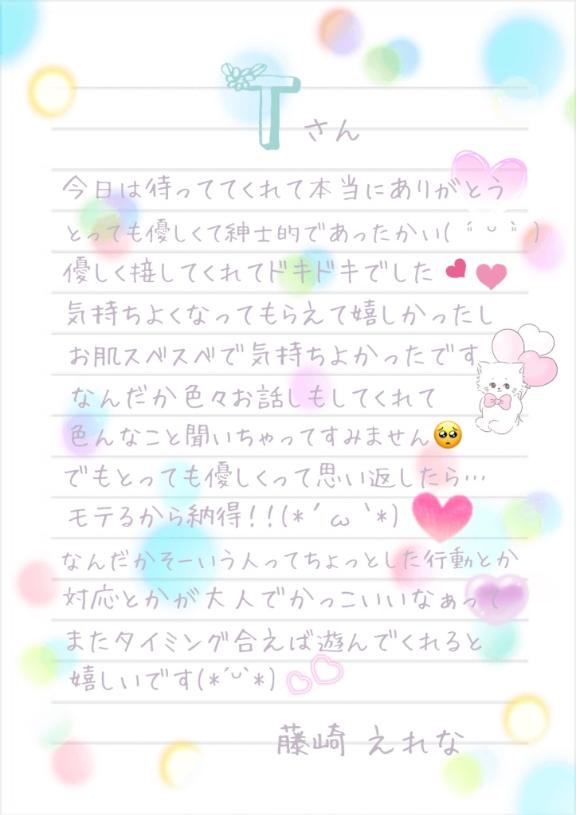 Tさん
今日は待っててくれて本当にありがとう
とっても優しくて紳士的であったかい(*´꒳`*)
優しく接してくれてドキドキでした💕
気持ちよくなってもらえて嬉しかったし
お肌スベスベで気持ちよかったです
なんだか色々お話しもしてくれて
色んなこと聞いちゃってすみません🥺
でもとっても優しくって思い返したら…
モテるから納得!!(*´ω`*)
なんだかそーいう人ってちょっとした行動とか
対応とかが大人でかっこいいなぁって
またタイミング合えば遊んでくれると
嬉しいです(*˘︶˘*)
藤崎 えれな